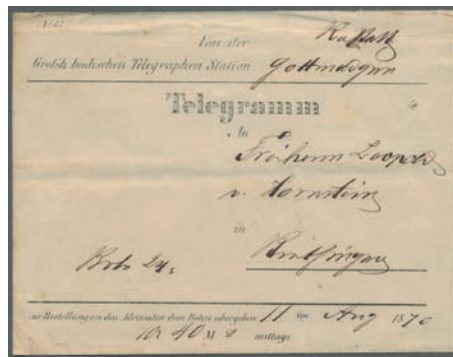 Von der Rastatt
Großh. badischen Telegraphen Station Gottmadingen
Telegramm
An
Freiherrn Leopold
v. Hornstein
in
Binthingen
Bote 24
zur Bestellung an den Adressaten dem Boten übergeben 11 ten Aug 1870
10 U 40 M mittags